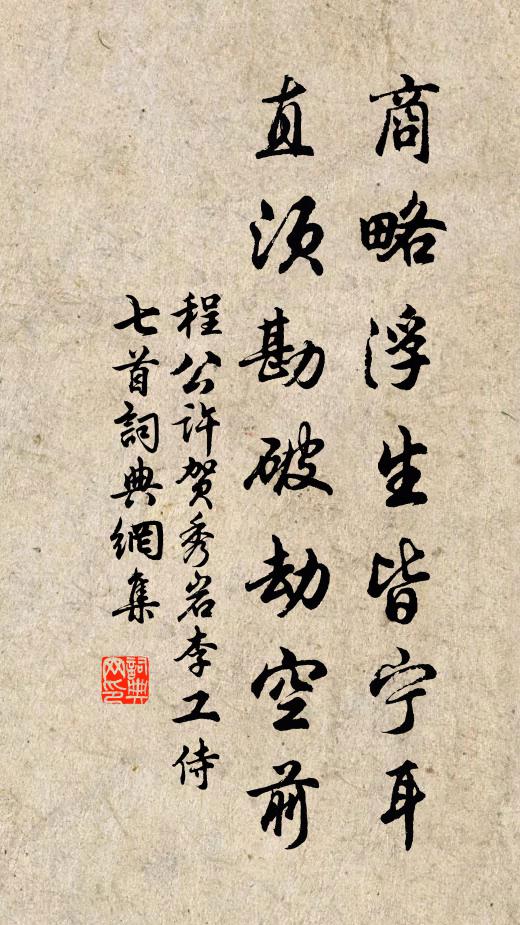 商略浮生皆宁耳
直须勘破劫空前
程公许贺秀岩李工侍
七首詞典網集
詞典網印